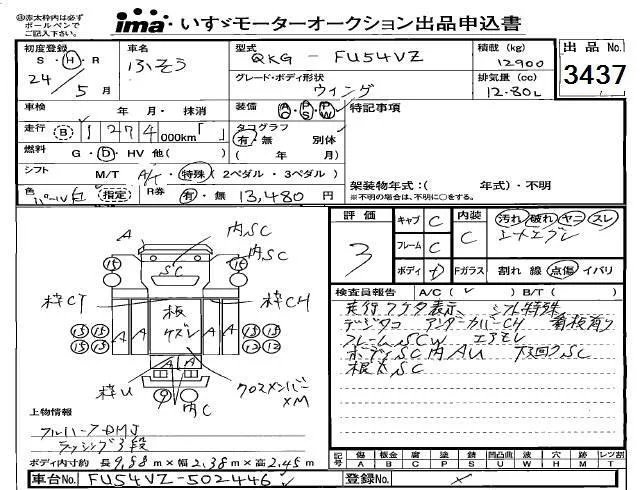 赤太枠内は必ず
ボールペンで
ご記入下さい。
ima いすゞモーターオークション出品申込書
初度登録 車名 型式 積載 (kg) 出品No.
S・H・R ふそう QKG - FU54VZ 12900 3437
24年 5月 グレード・ボディ形状 排気量 (cc)
ウィング 12.80L
車検 年・月・抹消 装備 AC・PS・PW 特記事項
走行 B 1274,000km「 」 タコグラフ
有・無 別体
燃料 G・D・HV 他( ) ( 年 月)
シフト M/T A/T 特殊 (2ペダル・3ペダル) 架装物年式:( 年式)・不明
色 パールV白 指定 R券 有・無 13,480円 ※不明の場合は、不明に○をする。
評価 キャブ C 内装 汚れ・破れ・ヤニ・スレ
3 フレーム C C
ボディ D Fガラス 割れ 線 点傷 イバリ
検査員報告 A/C( ✓ ) B/T( )
走行ワケタ表示 シフト特殊
デジタコ アンダーカバーCH 看板有り
フレームSCW エアモレ
ボディSC内AU 下回りSC
根太SC
A 内SC
A 内SC
15 SC 15
枠CT 板 枠CH
ケズレ
15 15 A A A A 15 15
15 15 12 12
A A
枠U 9 内C クロスメンバーXM
上物情報
フルハーフDMJ
ラッシング3段
ボディ内寸約 長9.88m×幅2.38m×高2.45m
記号 傷 板金 腐 塗 錆 凹凸曲 波 穴 跡 レツ割
A B C P S U W H M T
車台No. FU54VZ-502446 登録No.